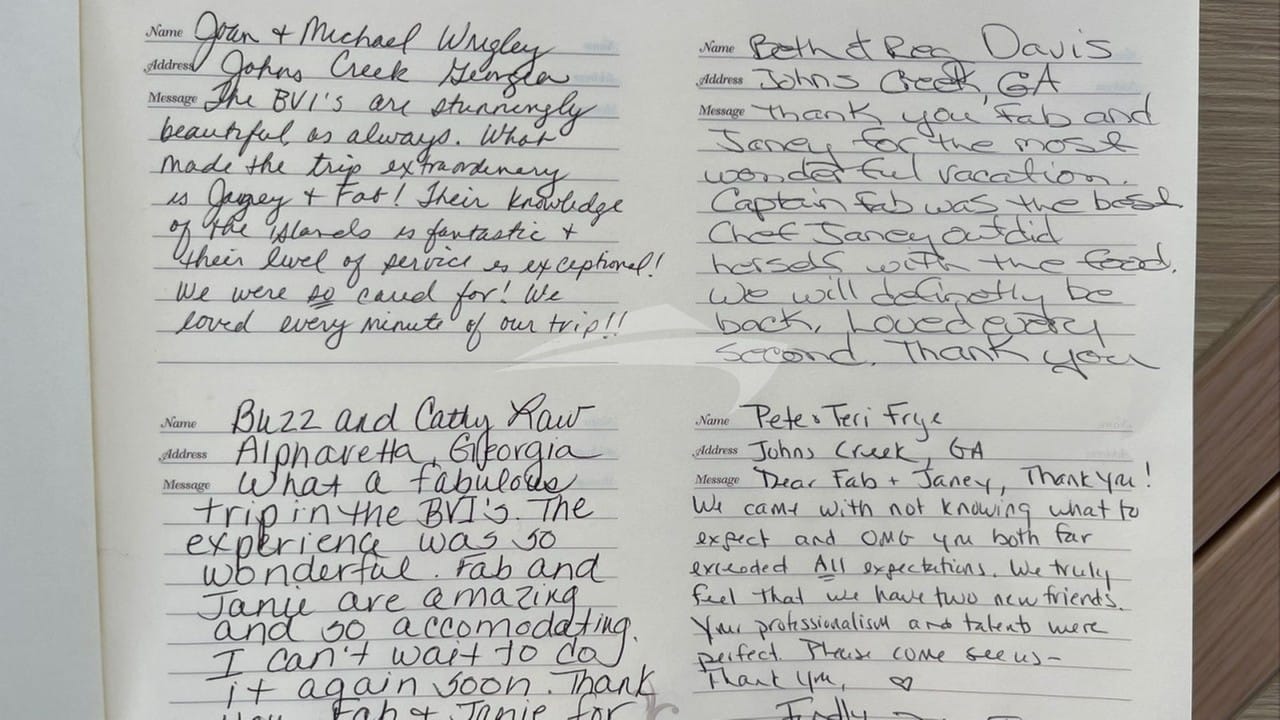 Name Joan + Michael Wrigley
Address Johns Creek Georgia
Message The BVI's are stunningly
beautiful as always. What
made the trip extraordinary
is Janey + Fab! Their knowledge
of the islands is fantastic +
their level of service is exceptional!
We were so cared for! We
loved every minute of our trip!!
Name Beth & Reg Davis
Address Johns Creek, GA
Message Thank you Fab and
Janey for the most
wonderful vacation.
Captain Fab was the best
Chef Janey outdid
herself with the food.
We will definetly be
back. Loved every
second. Thank you
Name Buzz and Cathy Raw
Address Alpharetta, Georgia
Message What a fabulous
trip in the BVI's. The
experience was so
wonderful. Fab and
Janie are amazing
and so accomodating.
I can't wait to do
it again soon. Thank
you Fab & Janie for
Name Pete + Teri Frye
Address Johns Creek, GA
Message Dear Fab + Janey, Thank you!
We came with not knowing what to
expect and OMG you both far
exceeded All expectations. We truly
feel that we have two new friends.
Your professionalism and talents were
perfect. Please come see us-
Thank you, ♡